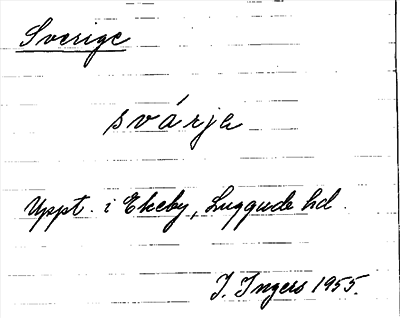 Sverige
svárje
Uppt. i Ekeby, Luggude hd.
I. Ingers 1955.